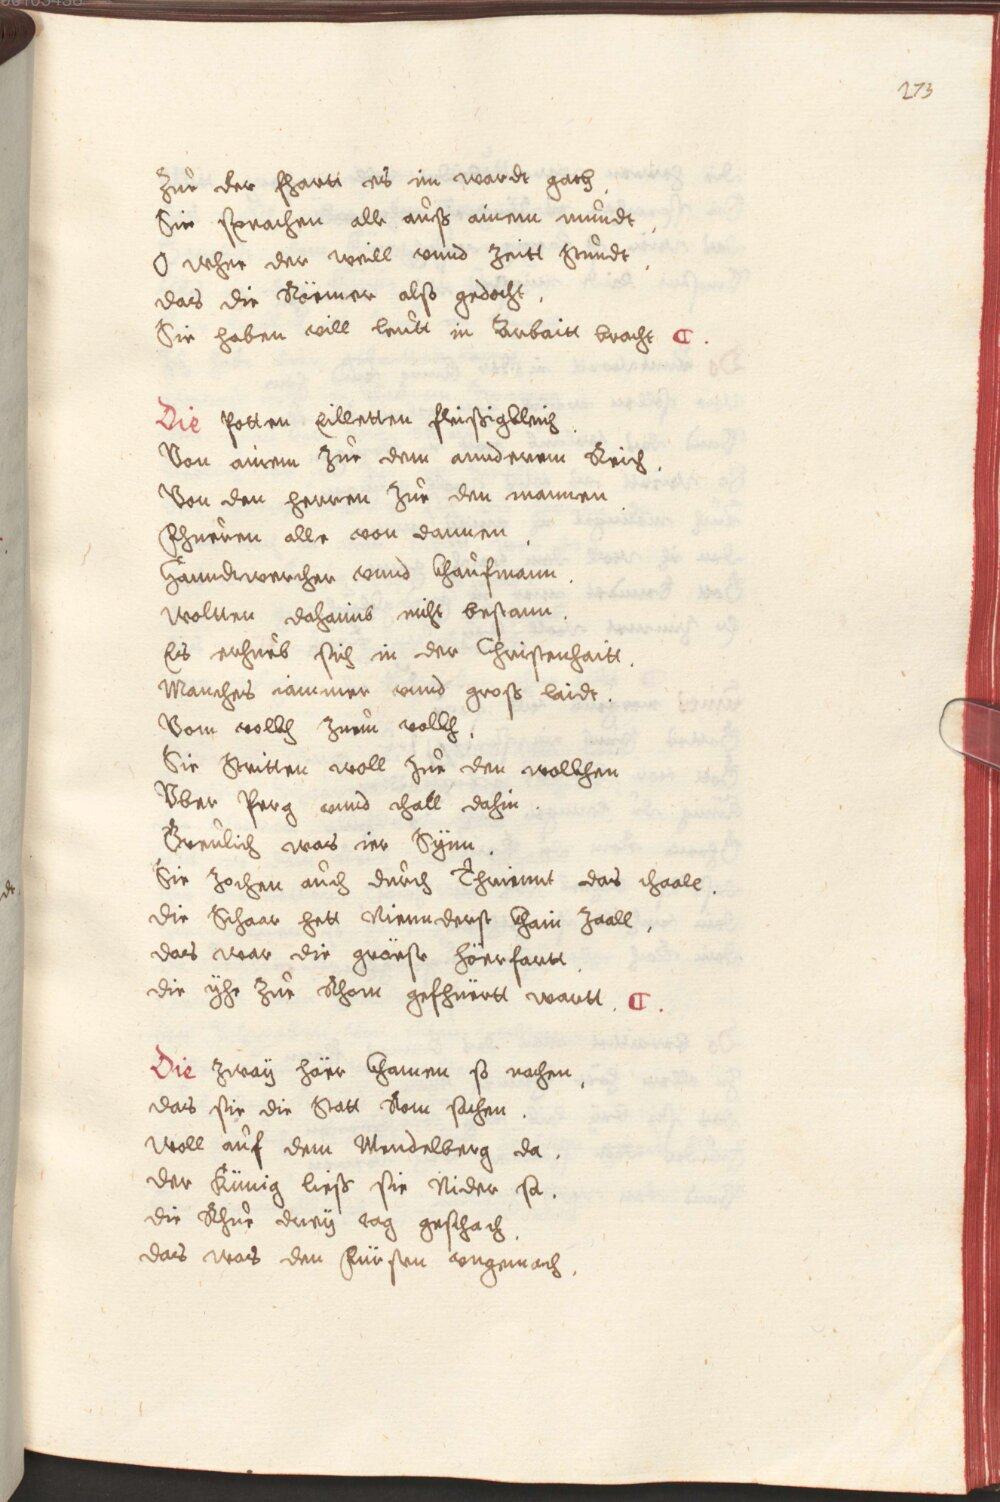 273
Zue der fhartt eis im wardt gach,
Sie sprachen alle auß ainem mundt,
O wher der weill vnnd zeitt stundt,
das die Römer alß gedocht,
Sie haben vill leutt in Arbaitt bracht C.
Die Potten Eilletten fleissigkleich.
Von ainem Zue dem annderem Reich.
Von den herren Zue den mannen
Fhueren alle von dannen,
Hanndtwercher vnnd Khaufmann.
wolten dahaimb nicht bestann.
Eis erhueb sich in der Christenhaitt.
Manches iammer vnnd gross laidt.
Vom vollkh Zuem vollkh.
Sie stritten woll Zue den wolkhen
Vber Perg vnnd thall dahin.
Greulich was ier Synn.
Sie zochen auch durch Thriennt das thaale.
die Schaar hett Nienderst Khain Zaall,
das war die gröeste höerfartt.
die ÿhe Zue Rhom gefhüertt wartt. C.
Die zwaÿ höer Khamen so nachen,
das sie die Statt Rom sachen.
woll auf dem Mendelberg da.
der Künig liess sie Nider sa.
die Rhue dreÿ tag geschach,
das was den Fürsten vngemach.